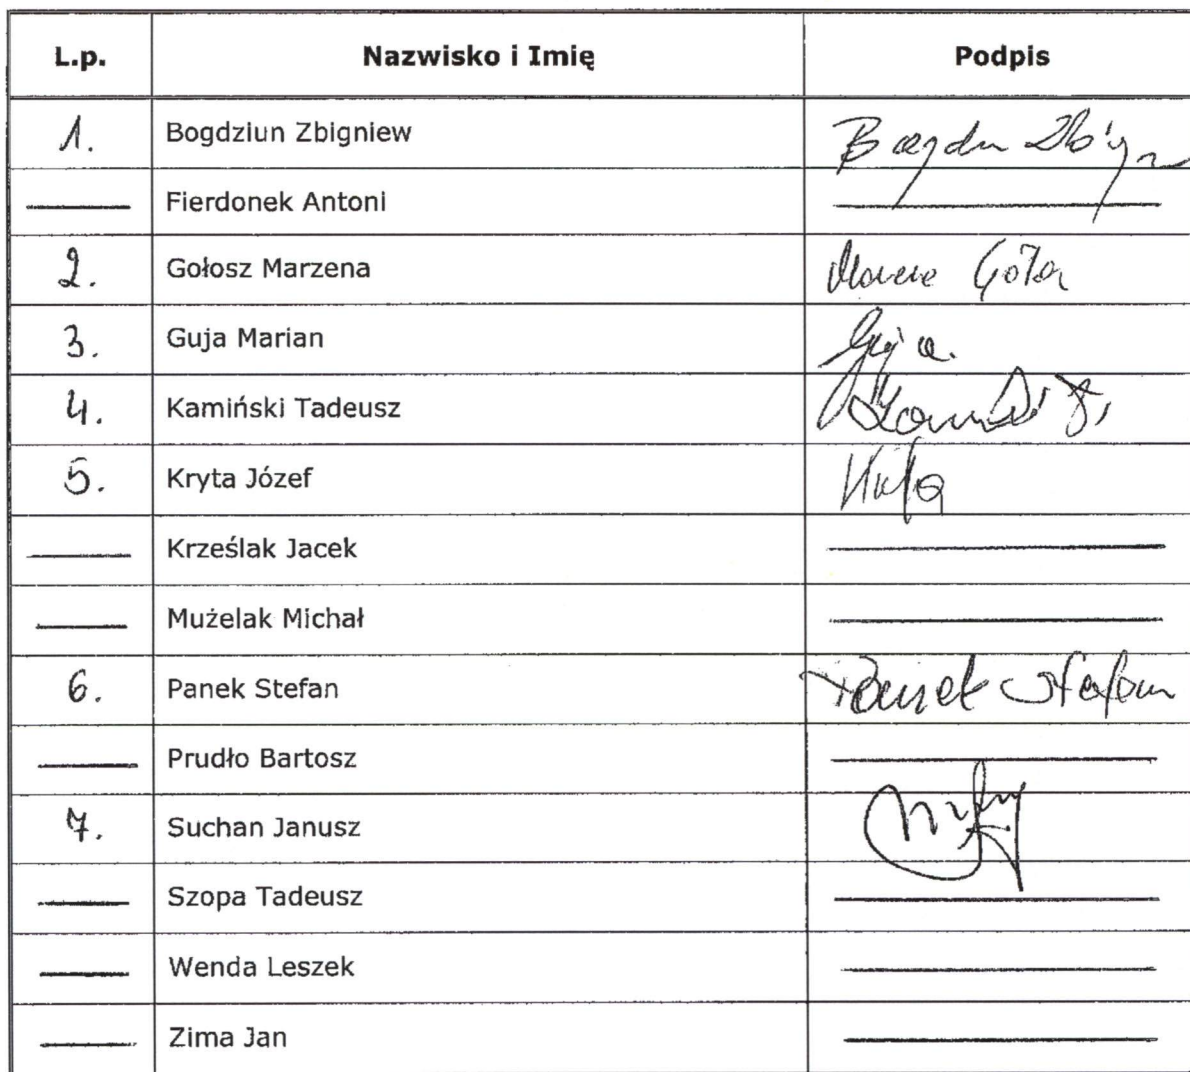 L.p. Nazwisko i Imię Podpis
1. Bogdziun Zbigniew
Fierdonek Antoni
2. Gołosz Marzena
3. Guja Marian Guja.
4. Kamiński Tadeusz
5. Kryta Józef
Krześlak Jacek
Mużelak Michał
6. Panek Stefan Panek Stefan
Prudło Bartosz
7. Suchan Janusz
Szopa Tadeusz
Wenda Leszek
Zima Jan